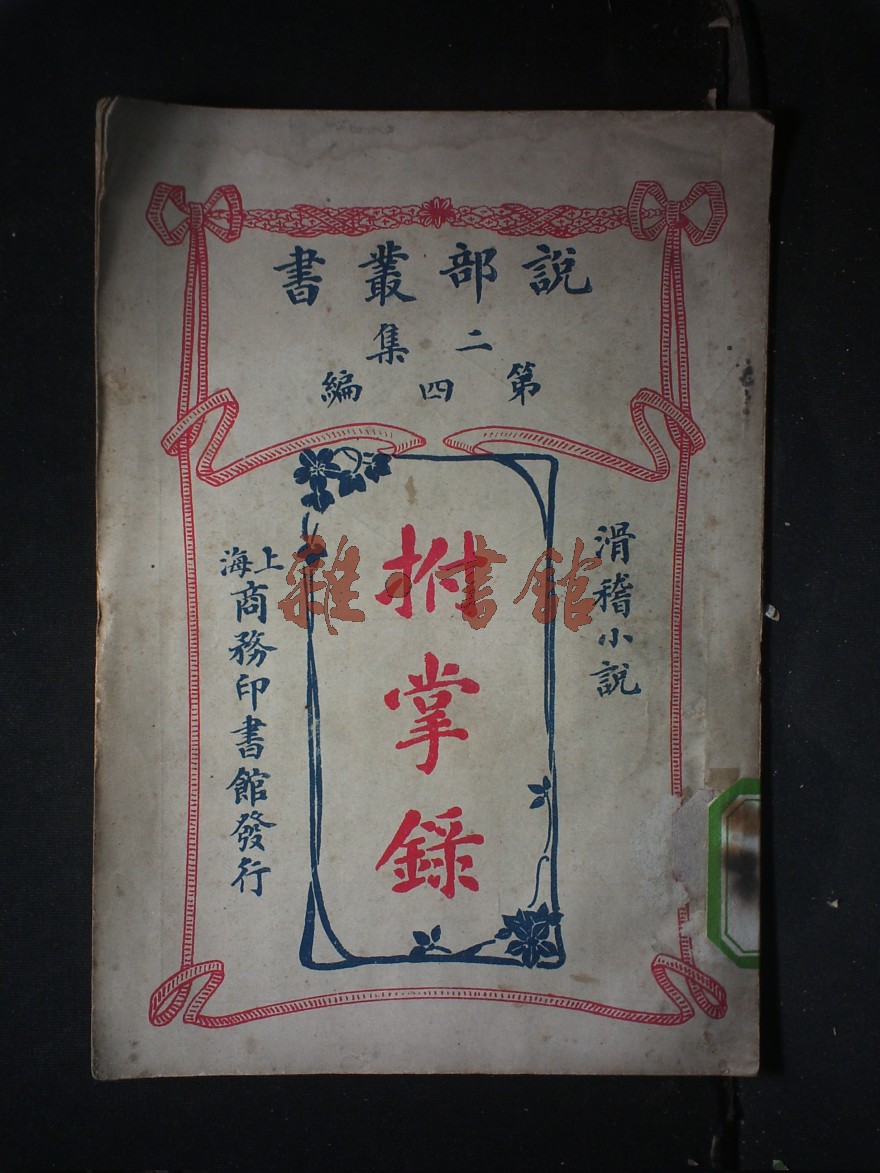 說部叢書
二集
第四編
滑稽小說
拊掌錄
上海
商務印書館發行
雜·書館